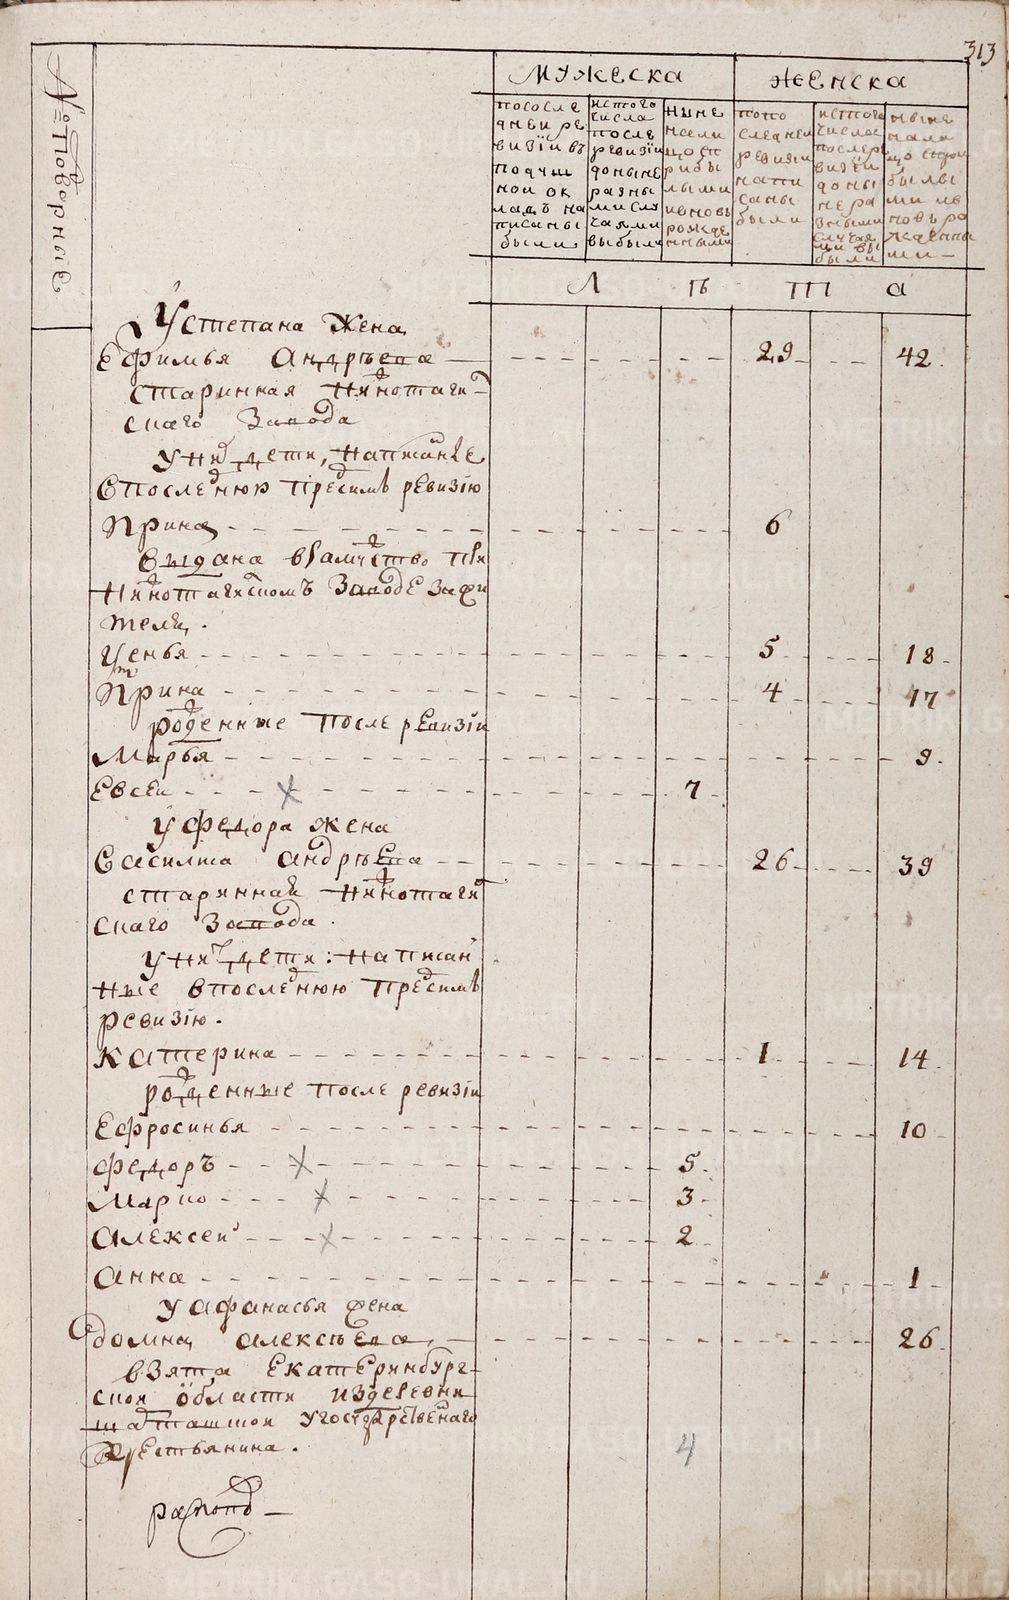 313
№ Подворные
Мужеска
Женска
попосле
дней ре
визіи въ
подуш
ной ок
ладъ на
писаны
были
истого
числа
после
ревизіи
доныне
разны
ми слу
чаями
выбыли
ныне
на
лицо с п
рибы
лыми
ивновь
рожде
нными
попо
следней
ревизіи
напи
саны
были
истого
числа
послере
визіи
доны
не ра
зными
случая
ми вы
были
ныне
нали
цо спри
былы
ми ив
новь ро
жденны
ми
Л ѣ т а
У степана жена
Ефимья Андрѣева 29 42
старинная Нижнотаги
скаго Завода
у них дети, написанные
впоследнюю пред симъ ревизію
Ирина 6
выдана взамужество при
Нижнотагилскомъ Заводе за жи
теля.
18
5
Ирина 4 17
рожденные после ревизіи
Марья 9
Евсеи 7
у федора жена
Василиса андрѣева 26 39
стариннай Нижнотаги
скаго Завода
у них дети: написан
ные впоследнюю пред симъ
ревизію.
Катерина 1 14
рожденные после ревизіи
Ефросинья 10
федоръ 5
Марко 3
Алексей 2
Анна 1
у афанасья жена
домна алексѣева 26
взята Екатеринбург
ской области издеревни
шарташской угосударственнаго
крестьянина.
4